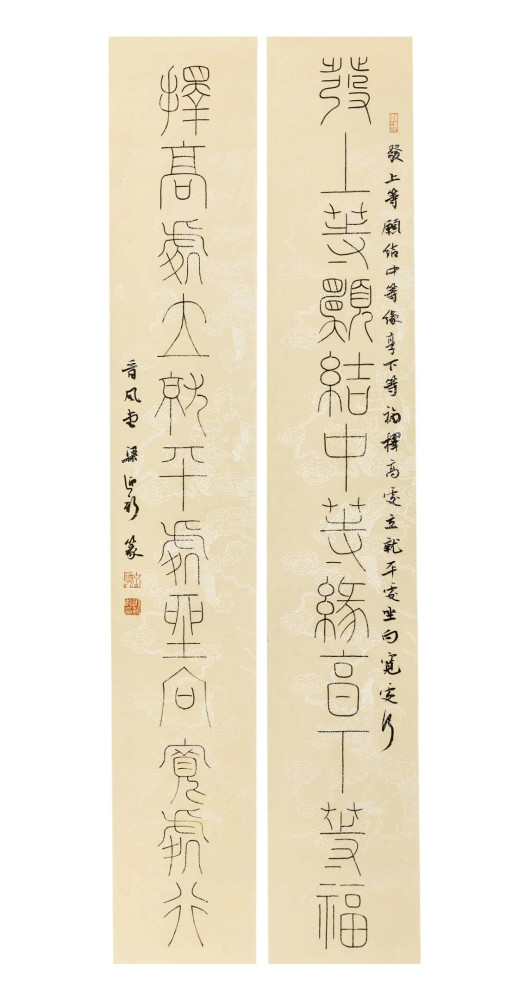 發上等願結中等緣享下等福
發上等願結中等緣享下等福擇高處立就平處坐向寬處行
擇高處立就平處坐向寬處行